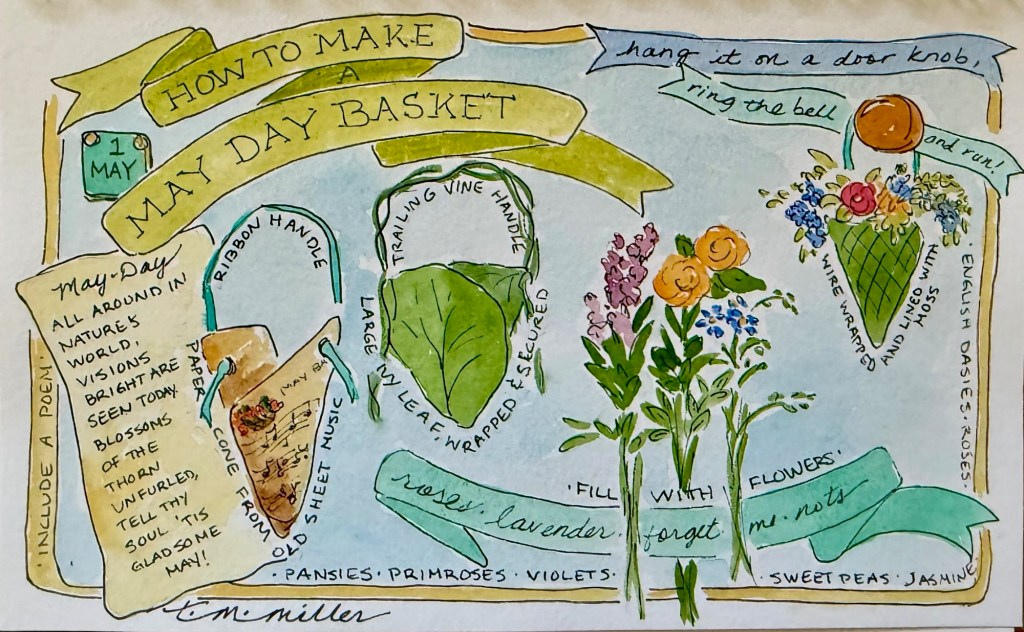 HOW TO MAKE
A
MAY DAY BASKET
hang it on a door knob,
ring the bell
and run!
1
MAY
May-Day
ALL AROUND IN
NATURE'S
WORLD,
VISIONS
BRIGHT ARE
SEEN TODAY
BLOSSOMS
OF THE
THORN
UNFURLED,
TELL THY
SOUL 'TIS
GLADSOME
MAY!
·INCLUDE A POEM·
RIBBON HANDLE
PAPER CONE FROM OLD SHEET MUSIC
TRAILING VINE HANDLE
LARGE IVY LEAF, WRAPPED & SECURED
WIRE WRAPPED AND LINED WITH MOSS
·FILL WITH FLOWERS·
roses· lavender· forget· me· nots
·PANSIES·PRIMROSES·VIOLETS·
·SWEETPEAS·JASMINE
·ENGLISH DASIES·ROSES·
t.m. miller